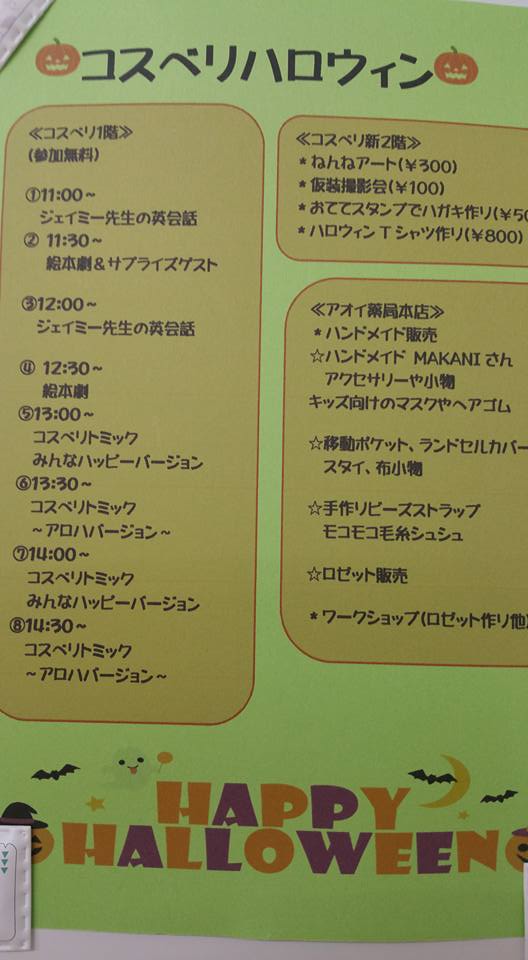 コスベリハロウィン
≪コスベリ1階≫
(参加無料)
①11:00~
ジェイミー先生の英会話
② 11:30~
絵本劇&サプライズゲスト
③12:00~
ジェイミー先生の英会話
④ 12:30~
絵本劇
⑤13:00~
コスベリトミック
みんなハッピーバージョン
⑥13:30~
コスベリトミック
~アロハバージョン~
⑦14:00~
コスベリトミック
みんなハッピーバージョン
⑧14:30~
コスベリトミック
~アロハバージョン~
≪コスベリ新2階≫
*ねんねアート(¥300)
*仮装撮影会(¥100)
*おててスタンプでハガキ作り(¥50
*ハロウィンTシャツ作り(¥800)
≪アオイ薬局本店≫
*ハンドメイド販売
☆ハンドメイド MAKANIさん
アクセサリーや小物
キッズ向けのマスクやヘアゴム
☆移動ポケット、ランドセルカバー
スタイ、布小物
☆手作りビーズストラップ
モコモコ毛糸シュシュ
☆ロゼット販売
*ワークショップ(ロゼット作り他)
HAPPY
HALLOWEEN